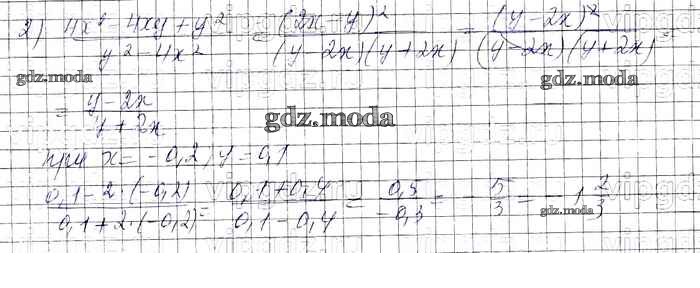 2) (4x² - 4xy + y²)/(y² - 4x²) = (2x - y)²/((y - 2x)(y + 2x)) = (y - 2x)²/((y - 2x)(y + 2x)) =
gdz.moda gdz.moda
= (y - 2x)/(y + 2x)
gdz.moda
при x = -0,2, y = 0,1
(0,1 - 2·(-0,2))/(0,1 + 2·(-0,2)) = (0,1 + 0,4)/(0,1 - 0,4) = 0,5/(-0,3) = -5/3 = -1 2/3
gdz.moda